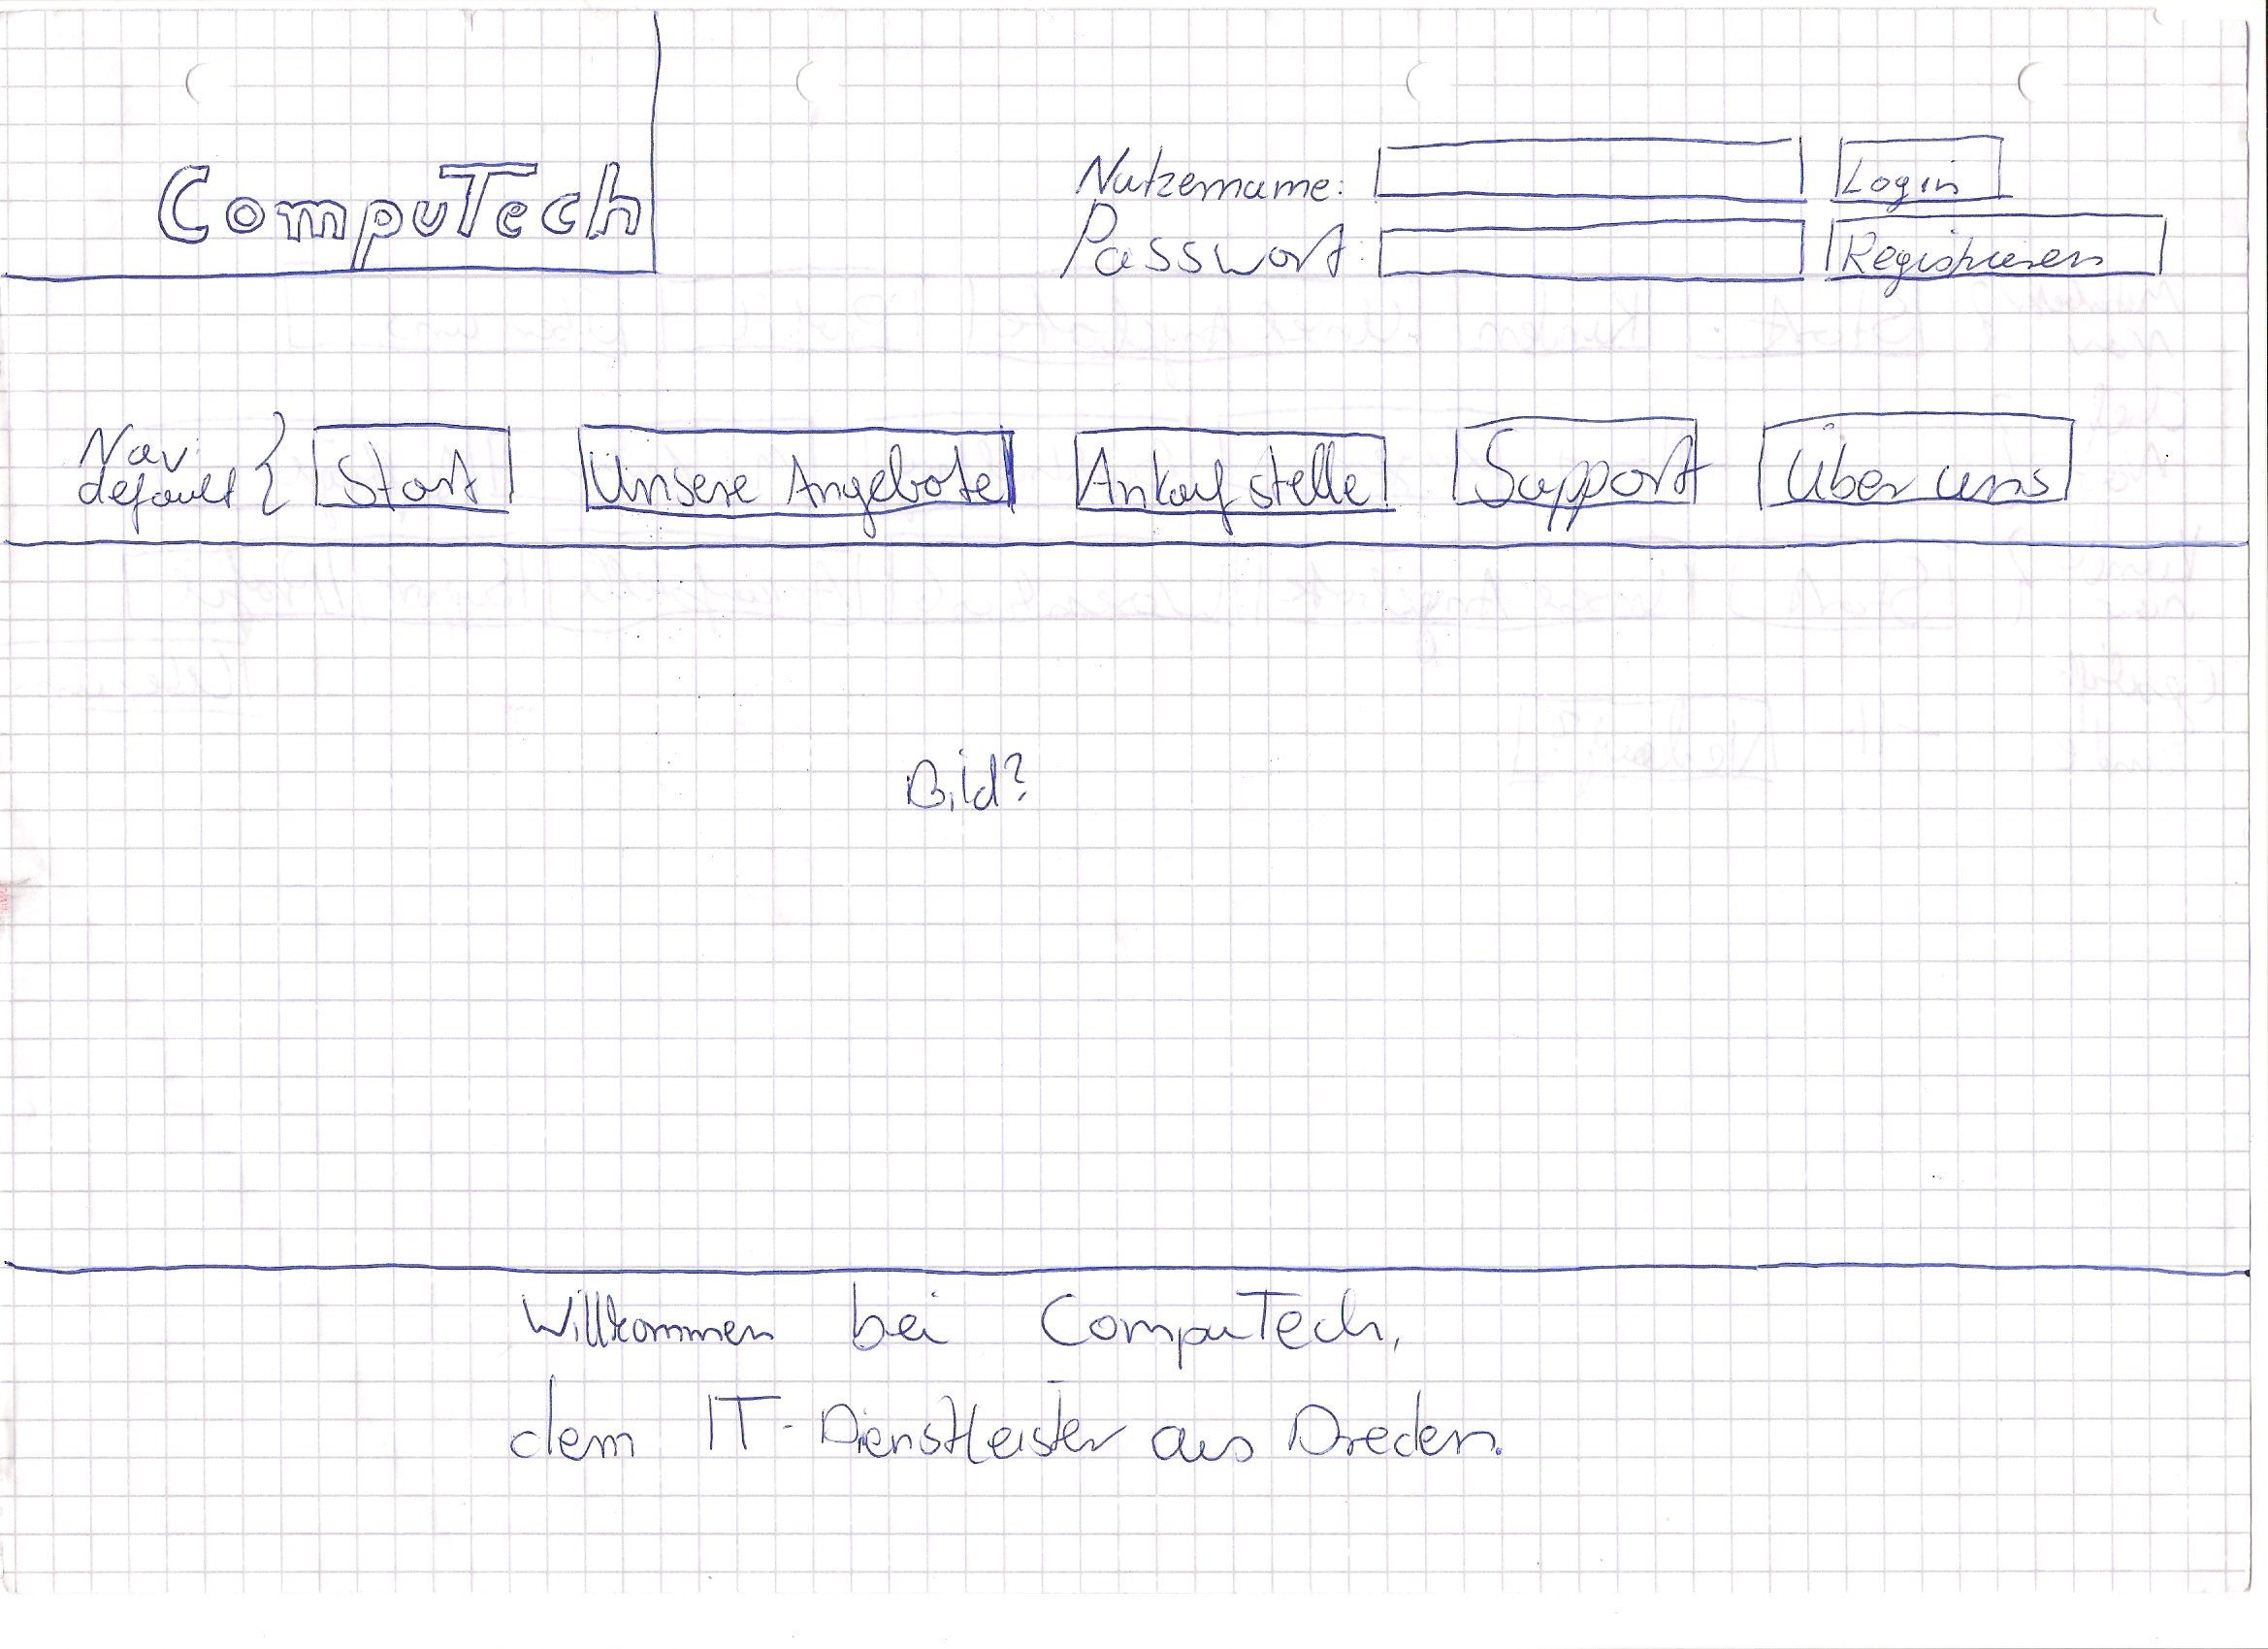 CompuTech
Nutzername:
Login
Passwort:
Registrieren
Nav.
default
Start
Unsere Angebote
Ankaufstelle
Support
Über uns
Bild?
Willkommen bei CompuTech,
dem IT-Dienstleister aus Dreden.